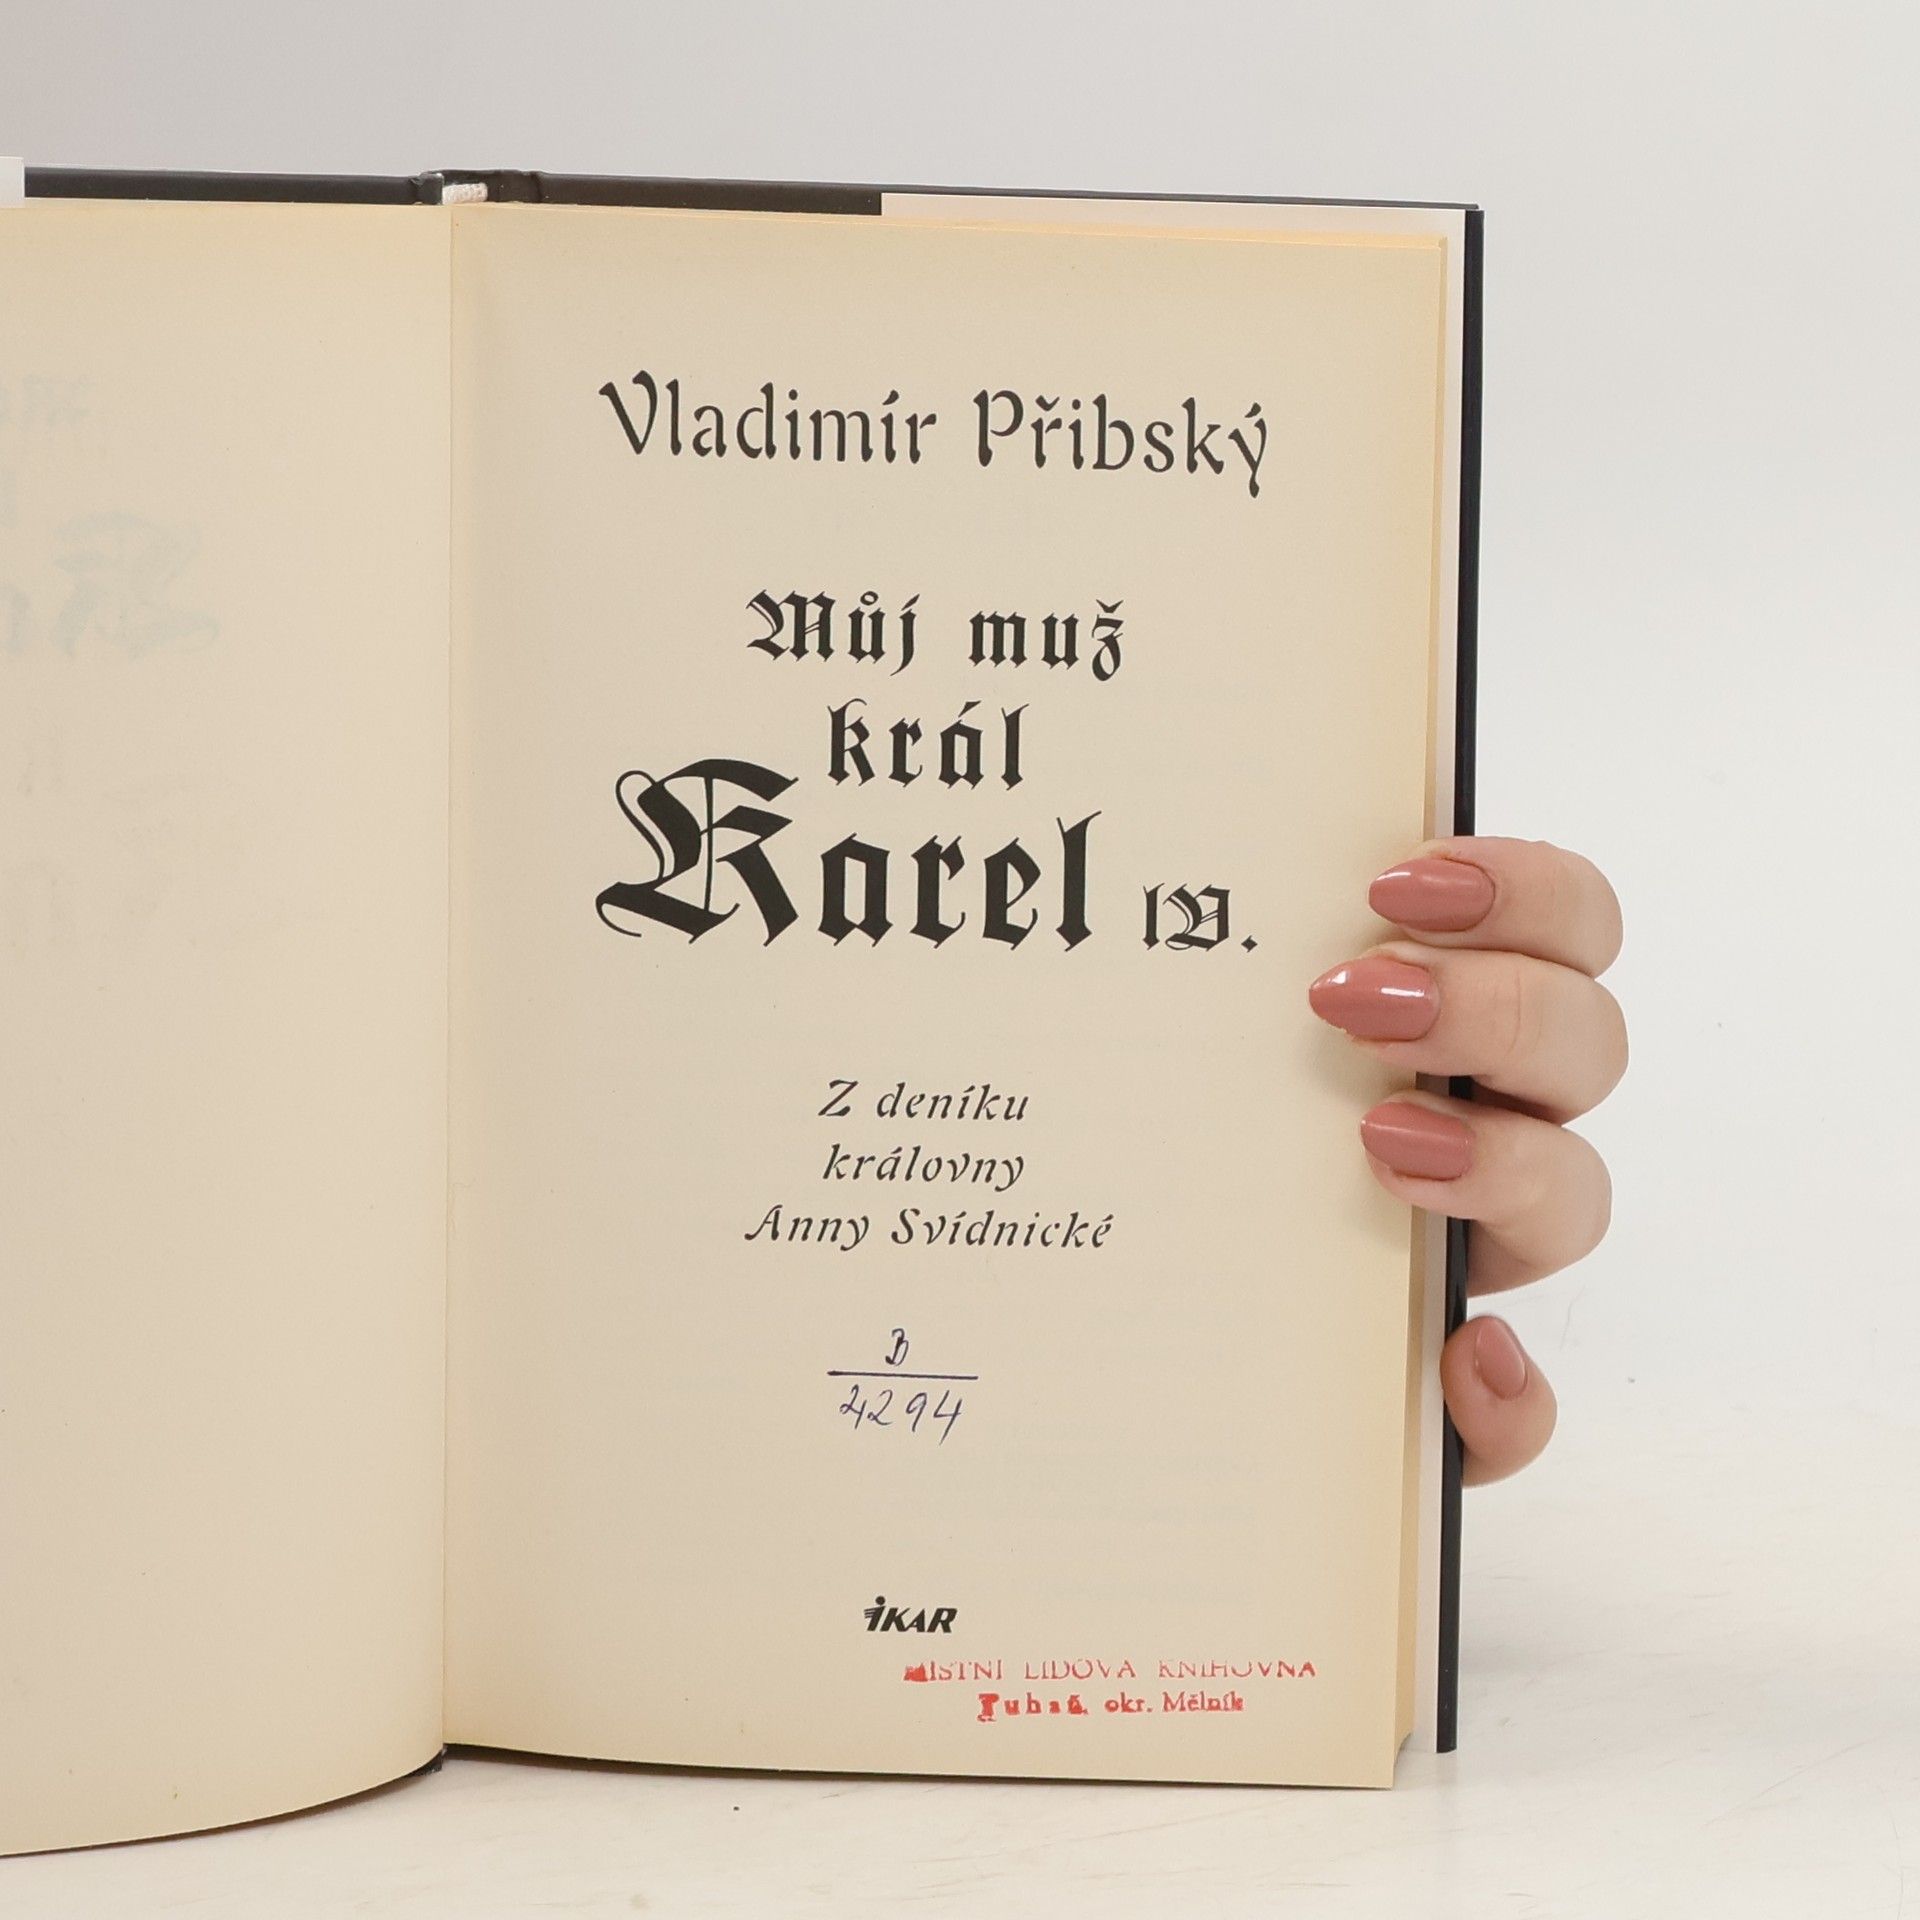 Vladimír Přibský
Můj muž
král
Karel IV.
Z deníku
královny
Anny Svídnické
B
4294
IKAR
MÍSTNÍ LIDOVÁ KNIHOVNA
Tuhaň, okr. Mělník